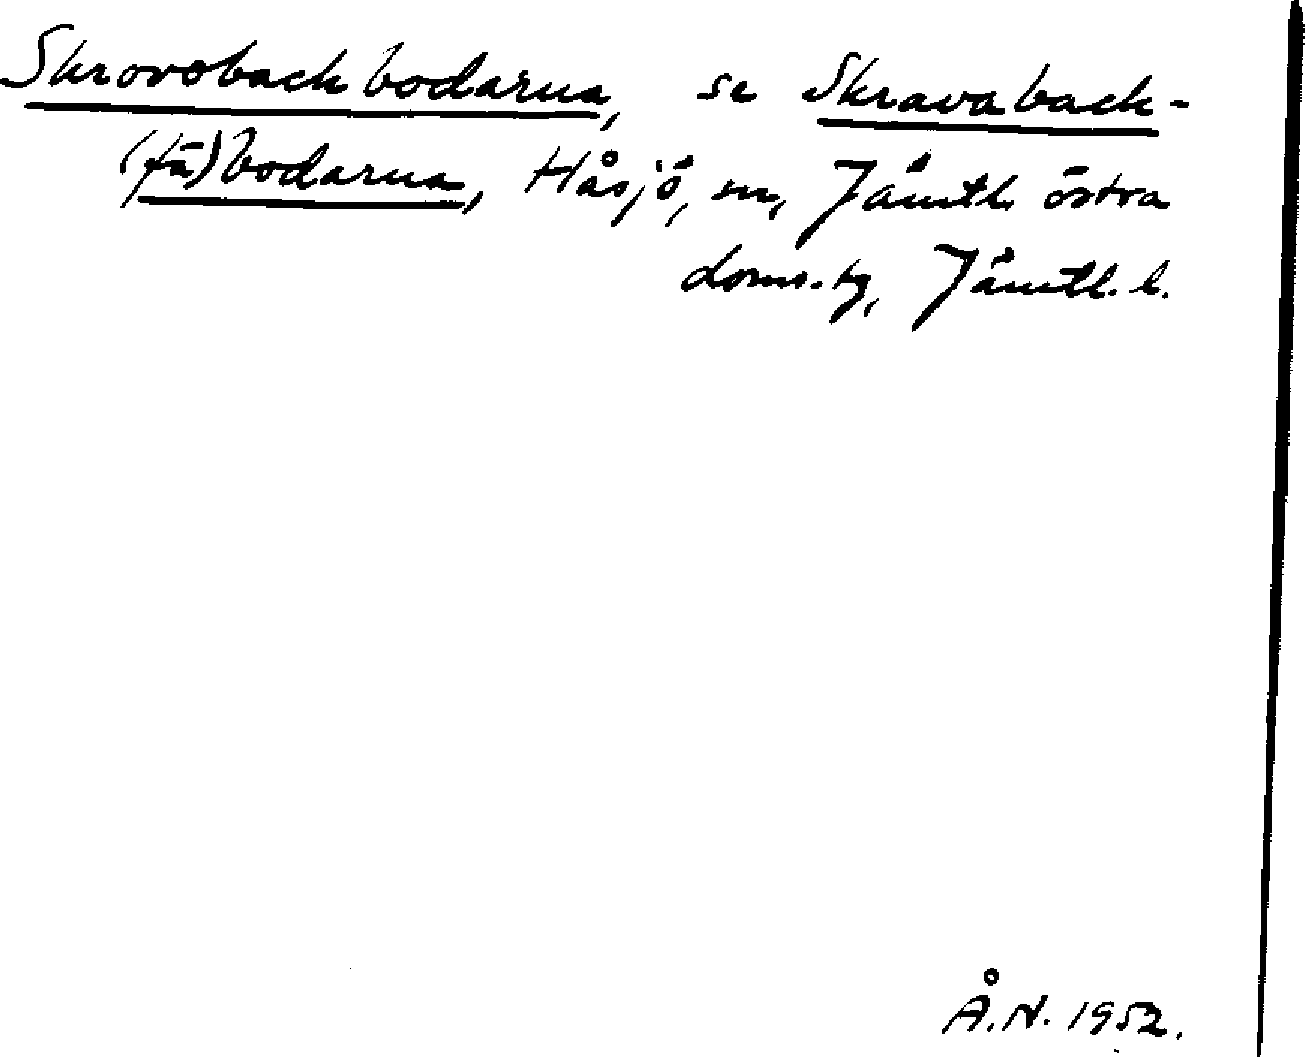 Skrovobackbodarna, se Skravaback-
(fä)bodarna, Håsjö, sn, Jämtl. östra
doms.-tg, Jämtl. l.
Å.N. 1952.